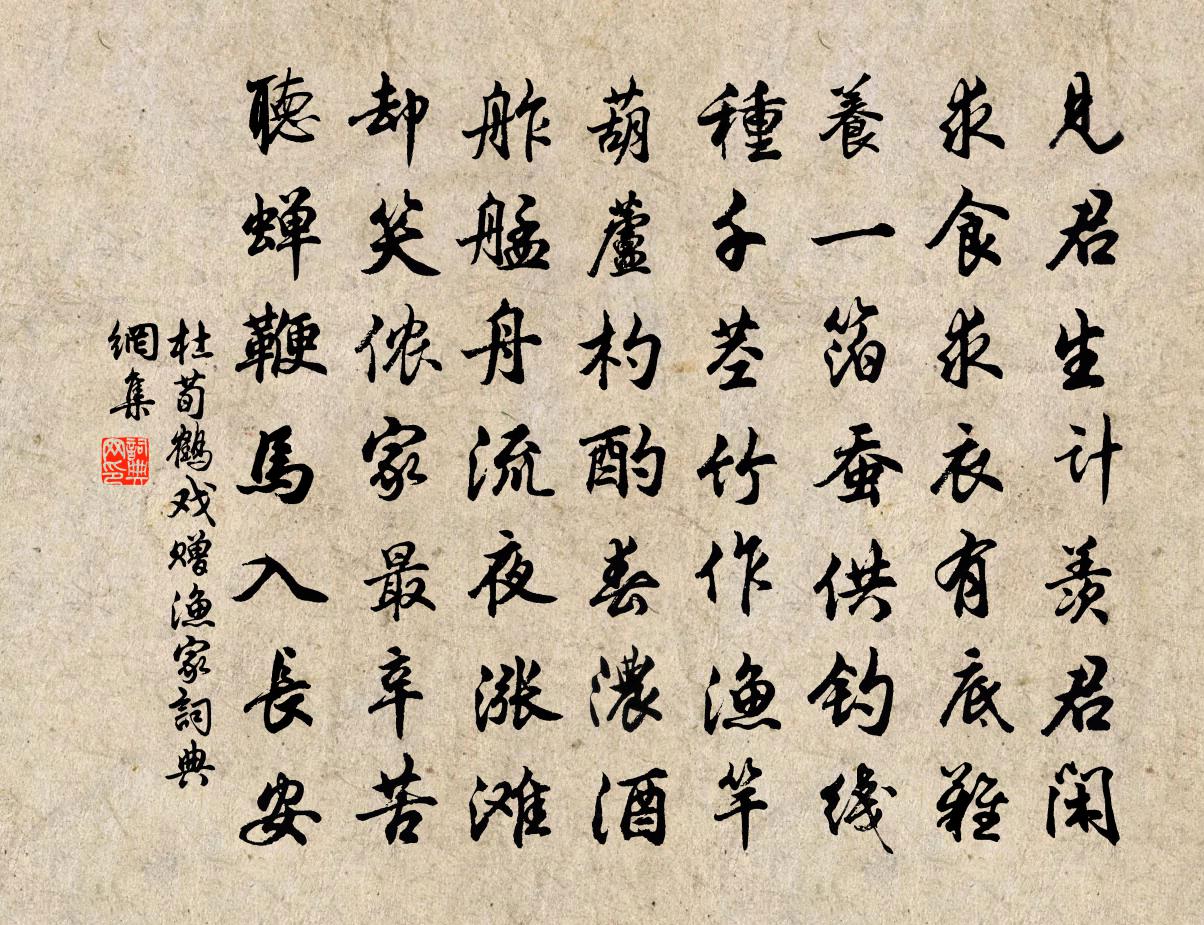 見君生计羨君闲
求食求衣有底難
養一箔蚕供釣线
種千茎竹作渔竿
葫蘆杓酌春濃酒
舴艋舟流夜涨滩
却笑侬家最辛苦
聽蝉鞭馬入長安
杜荀鶴戏赠渔家詞典
網集
詞典
网印